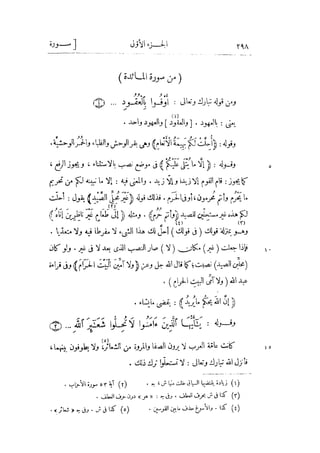 ٢٩٨ الجزء الأول [ ســورة
( من سورة المــائدة )
ومن قوله تبارك وتعالى : أَوْفُوا بِالْعُقُودِ ... (١)
يعنى : بالعهود . [ والعقود ] والعهود واحد .
وقوله : ( أُحِلَّتْ لَكُمْ بَهِيمَةُ الْأَنْعَامِ ) وهى بقر الوحش والظباء والحُمُر الوحشيّة .
٥ وقــوله : ( إِلَّا مَا يُتْلَى عَلَيْكُمْ ) فى موضع نصب بالاستثناء ، ويجوز الرفع ،
كما يجوز : قام القوم إلا زيدا وإلا زيد . والمعنى فيه : إلا ما نبينه لكم من تحريم
ما يَحْرم وأنتم محرمون ، أو فى الحرم . فذلك قوله ( غَيْرَ مُحِلِّي الصَّيْدِ ) يقول : أحلت
لكم هذه غير مستحلّين للصيد ( وَأَنْتُمْ حُرُمٌ ) . ومثله ( إِلَى طَعَامٍ غَيْرَ نَاظِرِينَ إِنَاهُ )
وهو بمنزلة قولك ( فى قولك ) أحل لك هذا الشىء لا مفرطا فيه ولا متعديا .
١٠ فإذا جعلت ( غير ) مكان ( لا ) صار النصب الذى بعد لا فى غير . ولو كان
( محلّين الصيد ) نصبت ؛ كما قال الله جل وعز ( وَلَا آمِّينَ الْبَيْتَ الْحَرَامَ ) وفى قراءة
عبد الله ( ولا آمِّى البيت الحرام ) .
( إِنَّ اللهَ يَحْكُمُ مَا يُرِيدُ ) : يقضى ما يشاء .
وقــوله : يَا أَيُّهَا الَّذِينَ آمَنُوا لَا تُحِلُّوا شَعَائِرَ اللهِ ... (٢)
١٥ كانت عامّة العرب لا يرون الصفا والمروة من الشعائر ، ولا يطوفون بينهما ،
فأنزل الله تبارك وتعالى : لا تستحلّوا ترك ذلك .
(١) زيادة يقتضيها السياق خلت منها ش ، ج . (٢) آية ٥٣ سورة الأحزاب .
(٣) كذا فى ش بحرف العطف . وفى ج : « هو » دون حرف العطف .
(٤) كذا فى ش ، ج . والأسوغ حذف ما بين القوسين . (٥) كذا فى ش . وفى ج « شعائر » .